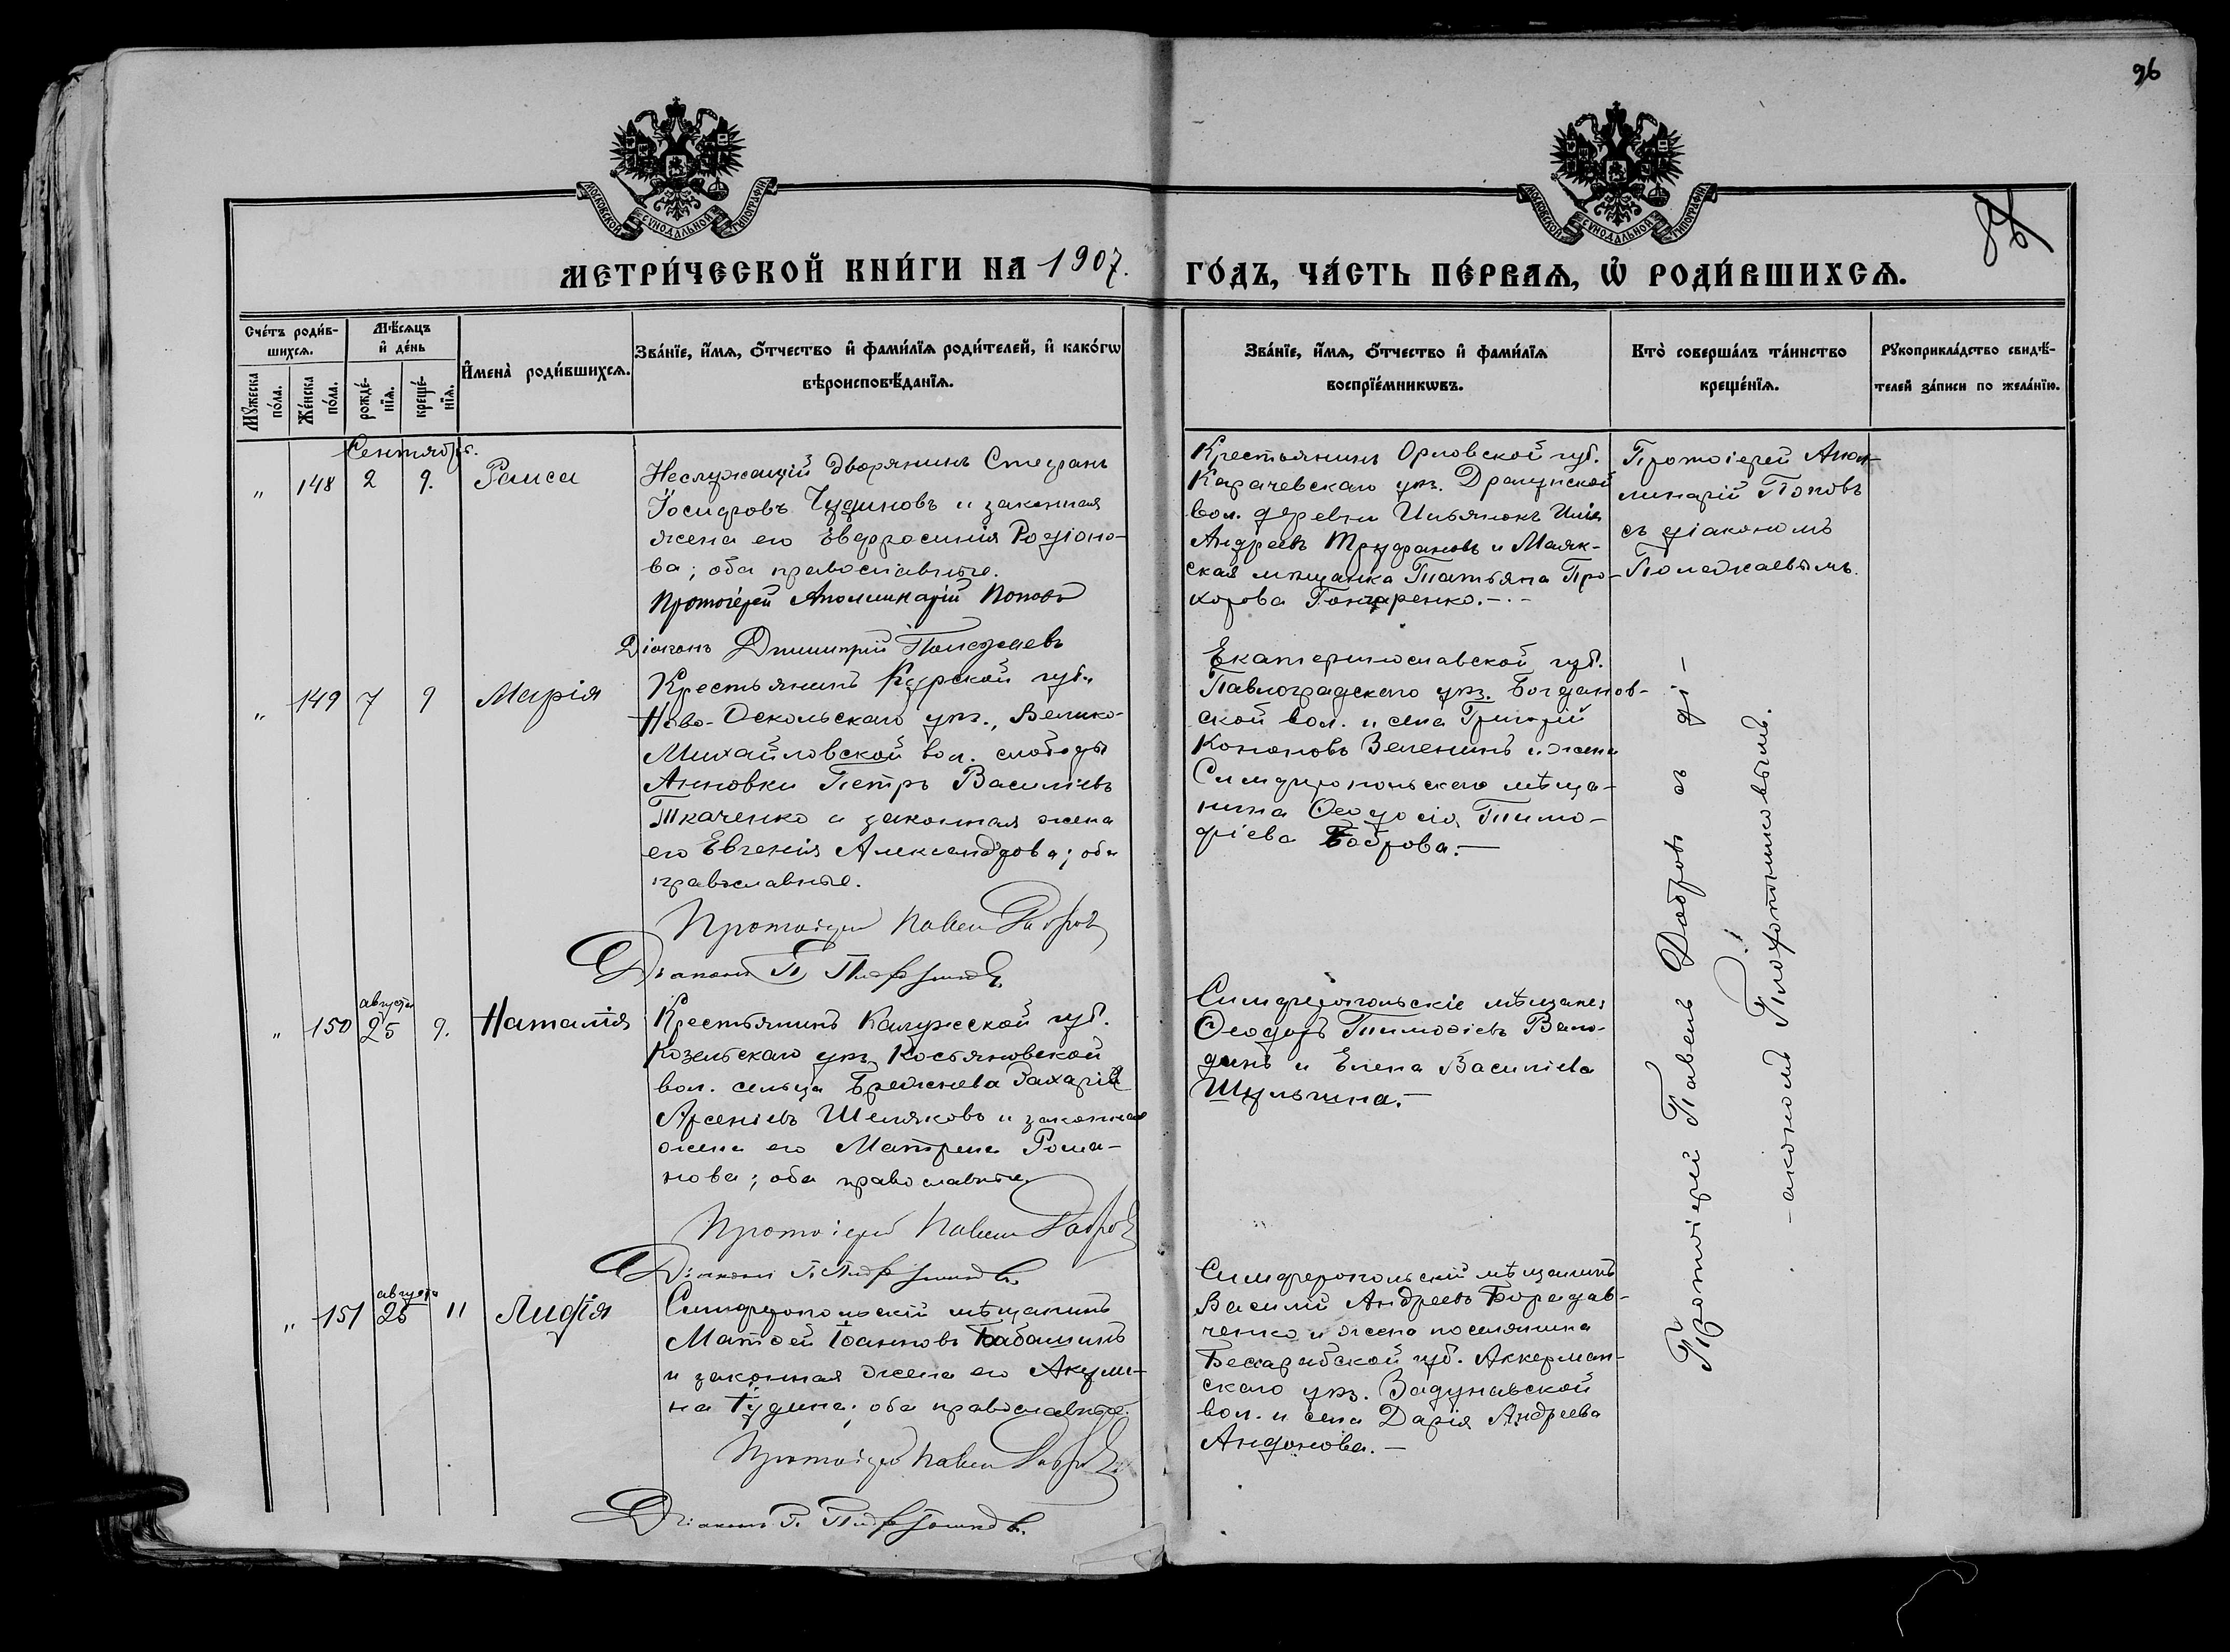 96
86
МОСКОВСКОЙ СѴНОДАЛЬНОЙ ТИПОГРАФІИ
МОСКОВСКОЙ СѴНОДАЛЬНОЙ ТИПОГРАФІИ
МЕТРИ́ЧЕСКОЙ КНИ́ГИ НА 1907.
ГО́ДЪ, ЧА́СТЬ ПЕ́РВАѦ, Ѿ РОДИ́ВШИХСѦ.
Сче́тъ роди́в-
шихсѧ.
Мꙋ́жеска по́ла.
Же́нска по́ла.
Мѣ́сѧцъ и҆ де́нь
рожде́-
нїѧ.
креще́-
нїѧ.
И҆мена̀ роди́вшихсѧ.
Зва́нїе, и҆́мѧ, ѻ҆́тчество и҆ фами́лїѧ роди́телей, и҆ како́гѡ
вѣроисповѣ́данїѧ.
Зва́нїе, и҆́мѧ, ѻ҆́тчество и҆ фами́лїѧ
воспрїе́мникѡвъ.
Кто̀ соверша́лъ та́инство
креще́нїѧ.
Рꙋкоприкла́дство свидѣ́-
телей за́писи по жела́нїю.
Сентябрь.
" 148 2 9. Раиса
Неслужащій дворянинъ Стефанъ
Іосифовъ Чудиновъ и законная
жена его Евфросинія Родіоно-
ва; оба православные.
Протоіерей Аполлинарій Поповъ
Діаконъ Димитрій Полежаевъ
Крестьянинъ Орловской губ.
Карачевскаго уѣз. Драгунской
вол. деревни Ильянокъ Илія
Андреевъ Труфановъ и Маяк-
ская мѣщанка Татьяна Про-
хорова Гончаренко.—
Протоіерей Апол-
линарій Поповъ
съ діакономъ
Полежаевымъ.
" 149 7 9 Марія
Крестьянинъ Курской губ.
Ново-Оскольскаго уѣз., Велико-
Михайловской вол. слободы
Анновки Петръ Василіевъ
Ткаченко и законная жена
его Евгенія Александрова; оба
православные.
Протоіерей Павелъ Добровъ
Діаконъ П. Плохотниковъ
Екатеринославской губ.
Павлоградскаго уѣз. Богданов-
ской вол. и села Григорій
Кононовъ Зеленинъ и жена
Симферопольскаго мѣща-
нина Ѳеодосія Тимо-
фіева Боброва.—
Протоіерей Павелъ Добровъ съ ді-
-акономъ Плохотниковымъ.
" 150 августа 25 9. Наталія
Крестьянинъ Калужской губ.
Козельскаго уѣз. Косьяновской
вол. сельца Брежнева Захарій
Арсеніевъ Шеляковъ и законная
жена его Матрена Рома-
нова; оба православные.
Протоіерей Павелъ Добровъ
Діаконъ П. Плохотниковъ
Симферопольскіе мѣщане:
Ѳеодоръ Тимоѳіевъ Воло-
динъ и Елена Василіева
Шульгина.—
" 151 августа 25 11 Лидія
Симферопольскій мѣщанинъ
Матѳей Іоанновъ Бабашинъ
и законная жена его Акули-
на Гудина; оба православные.
Протоіерей Павелъ Добровъ
Діаконъ П. Плохотниковъ
Симферопольскій мѣщанинъ
Василій Андреевъ Бородав-
ченко и жена поселянина
Бессарабской губ. Аккерман-
скаго уѣз. Задунавской
вол. и села Дарія Андреева
Андонова.—